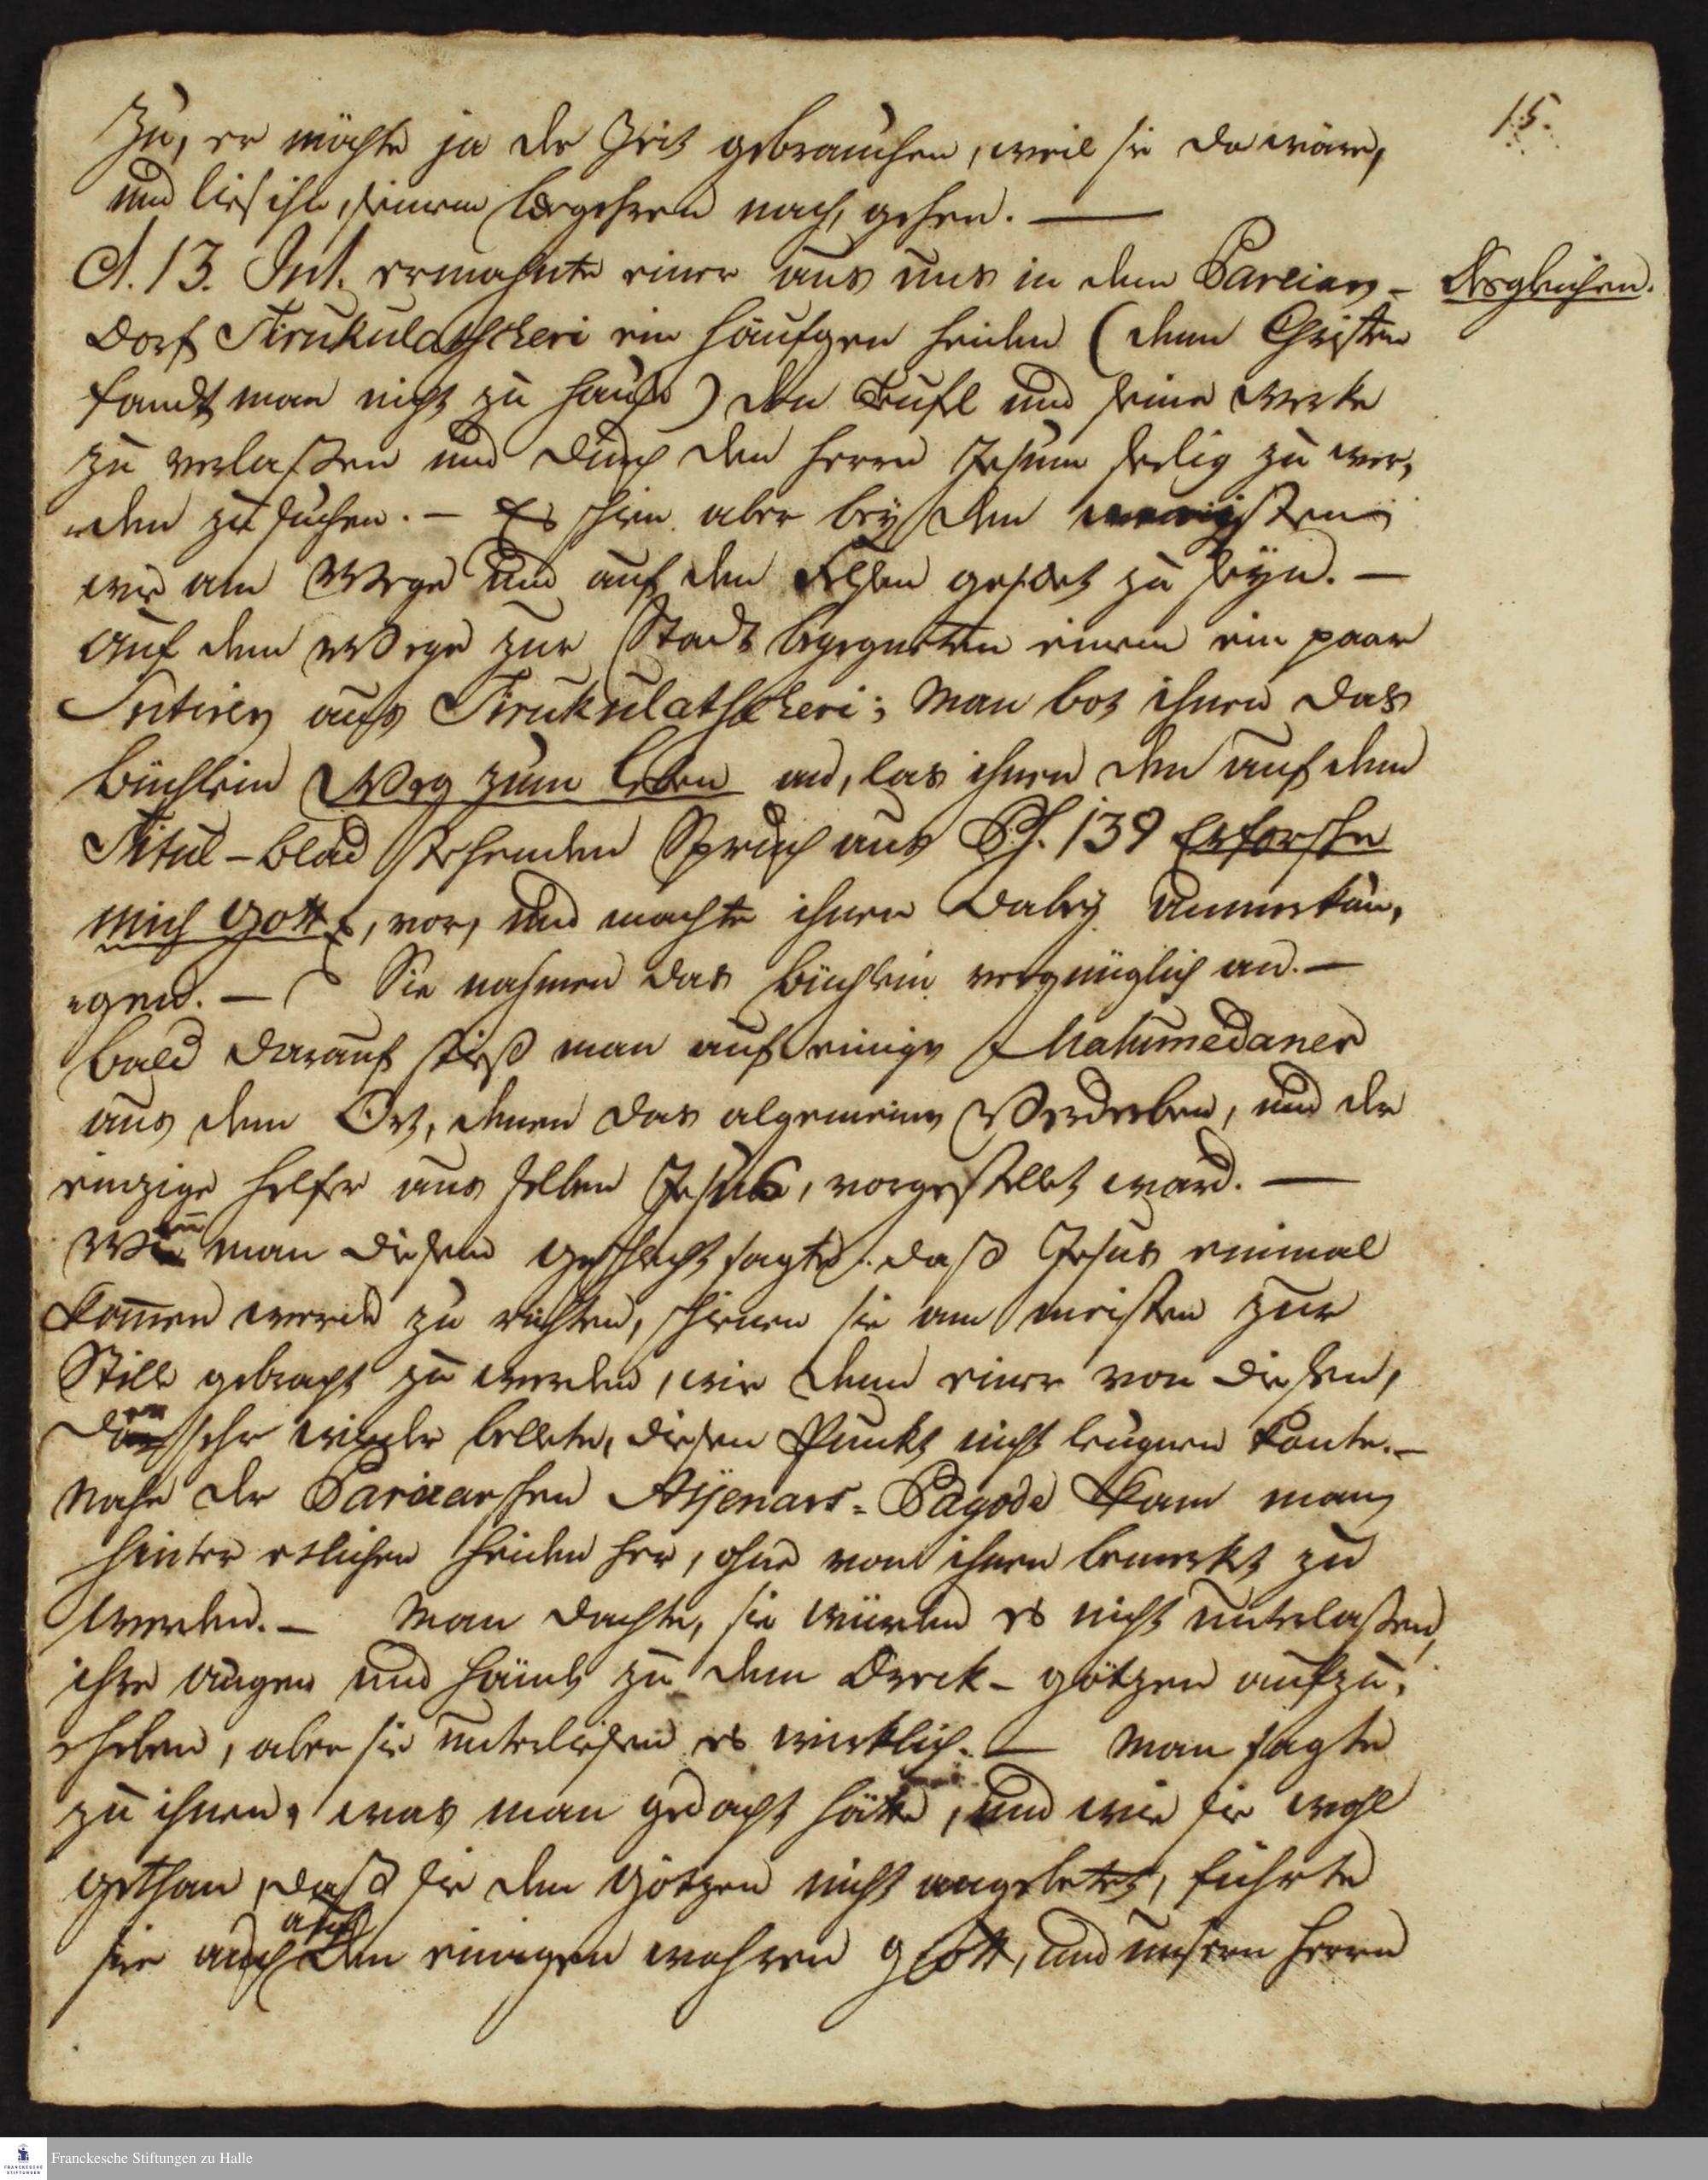 15.
zu, er möchte ja der Zeit gebrauchen, weil sie da wäre,
und ließ ihn, seinem Begehren nach, gehen. —
d. 13. Jul. ermahnte einer aus uns in dem Pareier-
Desgleichen.
Dorf Tirukulatscheri ein Häufgen Heiden (denn Christen
fandt man nicht zu Hause) den Teufel und seine Werke
zu verlaßen und durch den Herrn Jesum seelig zu wer,
„den zu suchen. – Es schien aber bey den wenigsten
wie am Wege und auf den Felsen gesäet zu seyn. –
Auf dem Wege zur Stadt begegneten einem ein paar
Sutirer aus Tirukulatscheri; Man bot ihnen das
Büchlein Weg zum Leben an, las ihnen den auf dem
Titul-Blad stehenden Spruch aus Ps. 139 Erforsche
mich Gott, vor, und machte ihnen dabey Anmerkun,
„gen. – Sie nahmen das Büchlein vergnüglich an. –
Bald darauf stieß man auf einige Mahumedaner
aus dem Ort, denen das algemeine Verderben, und der
einzige Helfer aus selben Jesus, vorgestellet ward. —
Wenn man diesem Geschlecht sagte. daß Jesus einmal
komen werde zu richten, schienen sie am meisten zur
Stille gebracht zu werden, wie denn einer von diesen,
der sehr wieder bellete, diesen Punkt nicht leugnen konte. –
Nahe der Pareiarschen Aijenars-Pagode kam man
hinter etlichen Heiden her, ohne von ihnen bemerkt zu
werden. – Man dachte, sie würden es nicht unterlaßen,
ihre Augen und Hände zu dem Dreck-Götzen aufzu,
„heben, aber sie unterließen es wircklich. — Man sagte
zu ihnen, was man gedacht hätte, und wie sie wohl
gethan, daß sie den Götzen nicht angebetet, führte
sie auch auf den einigen wahren Gott, und unsern Herrn
Franckesche Stiftungen zu Halle